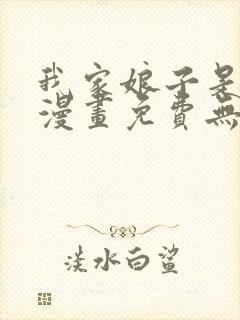 我家娘子是
漫畫免費無
淡水白鯊